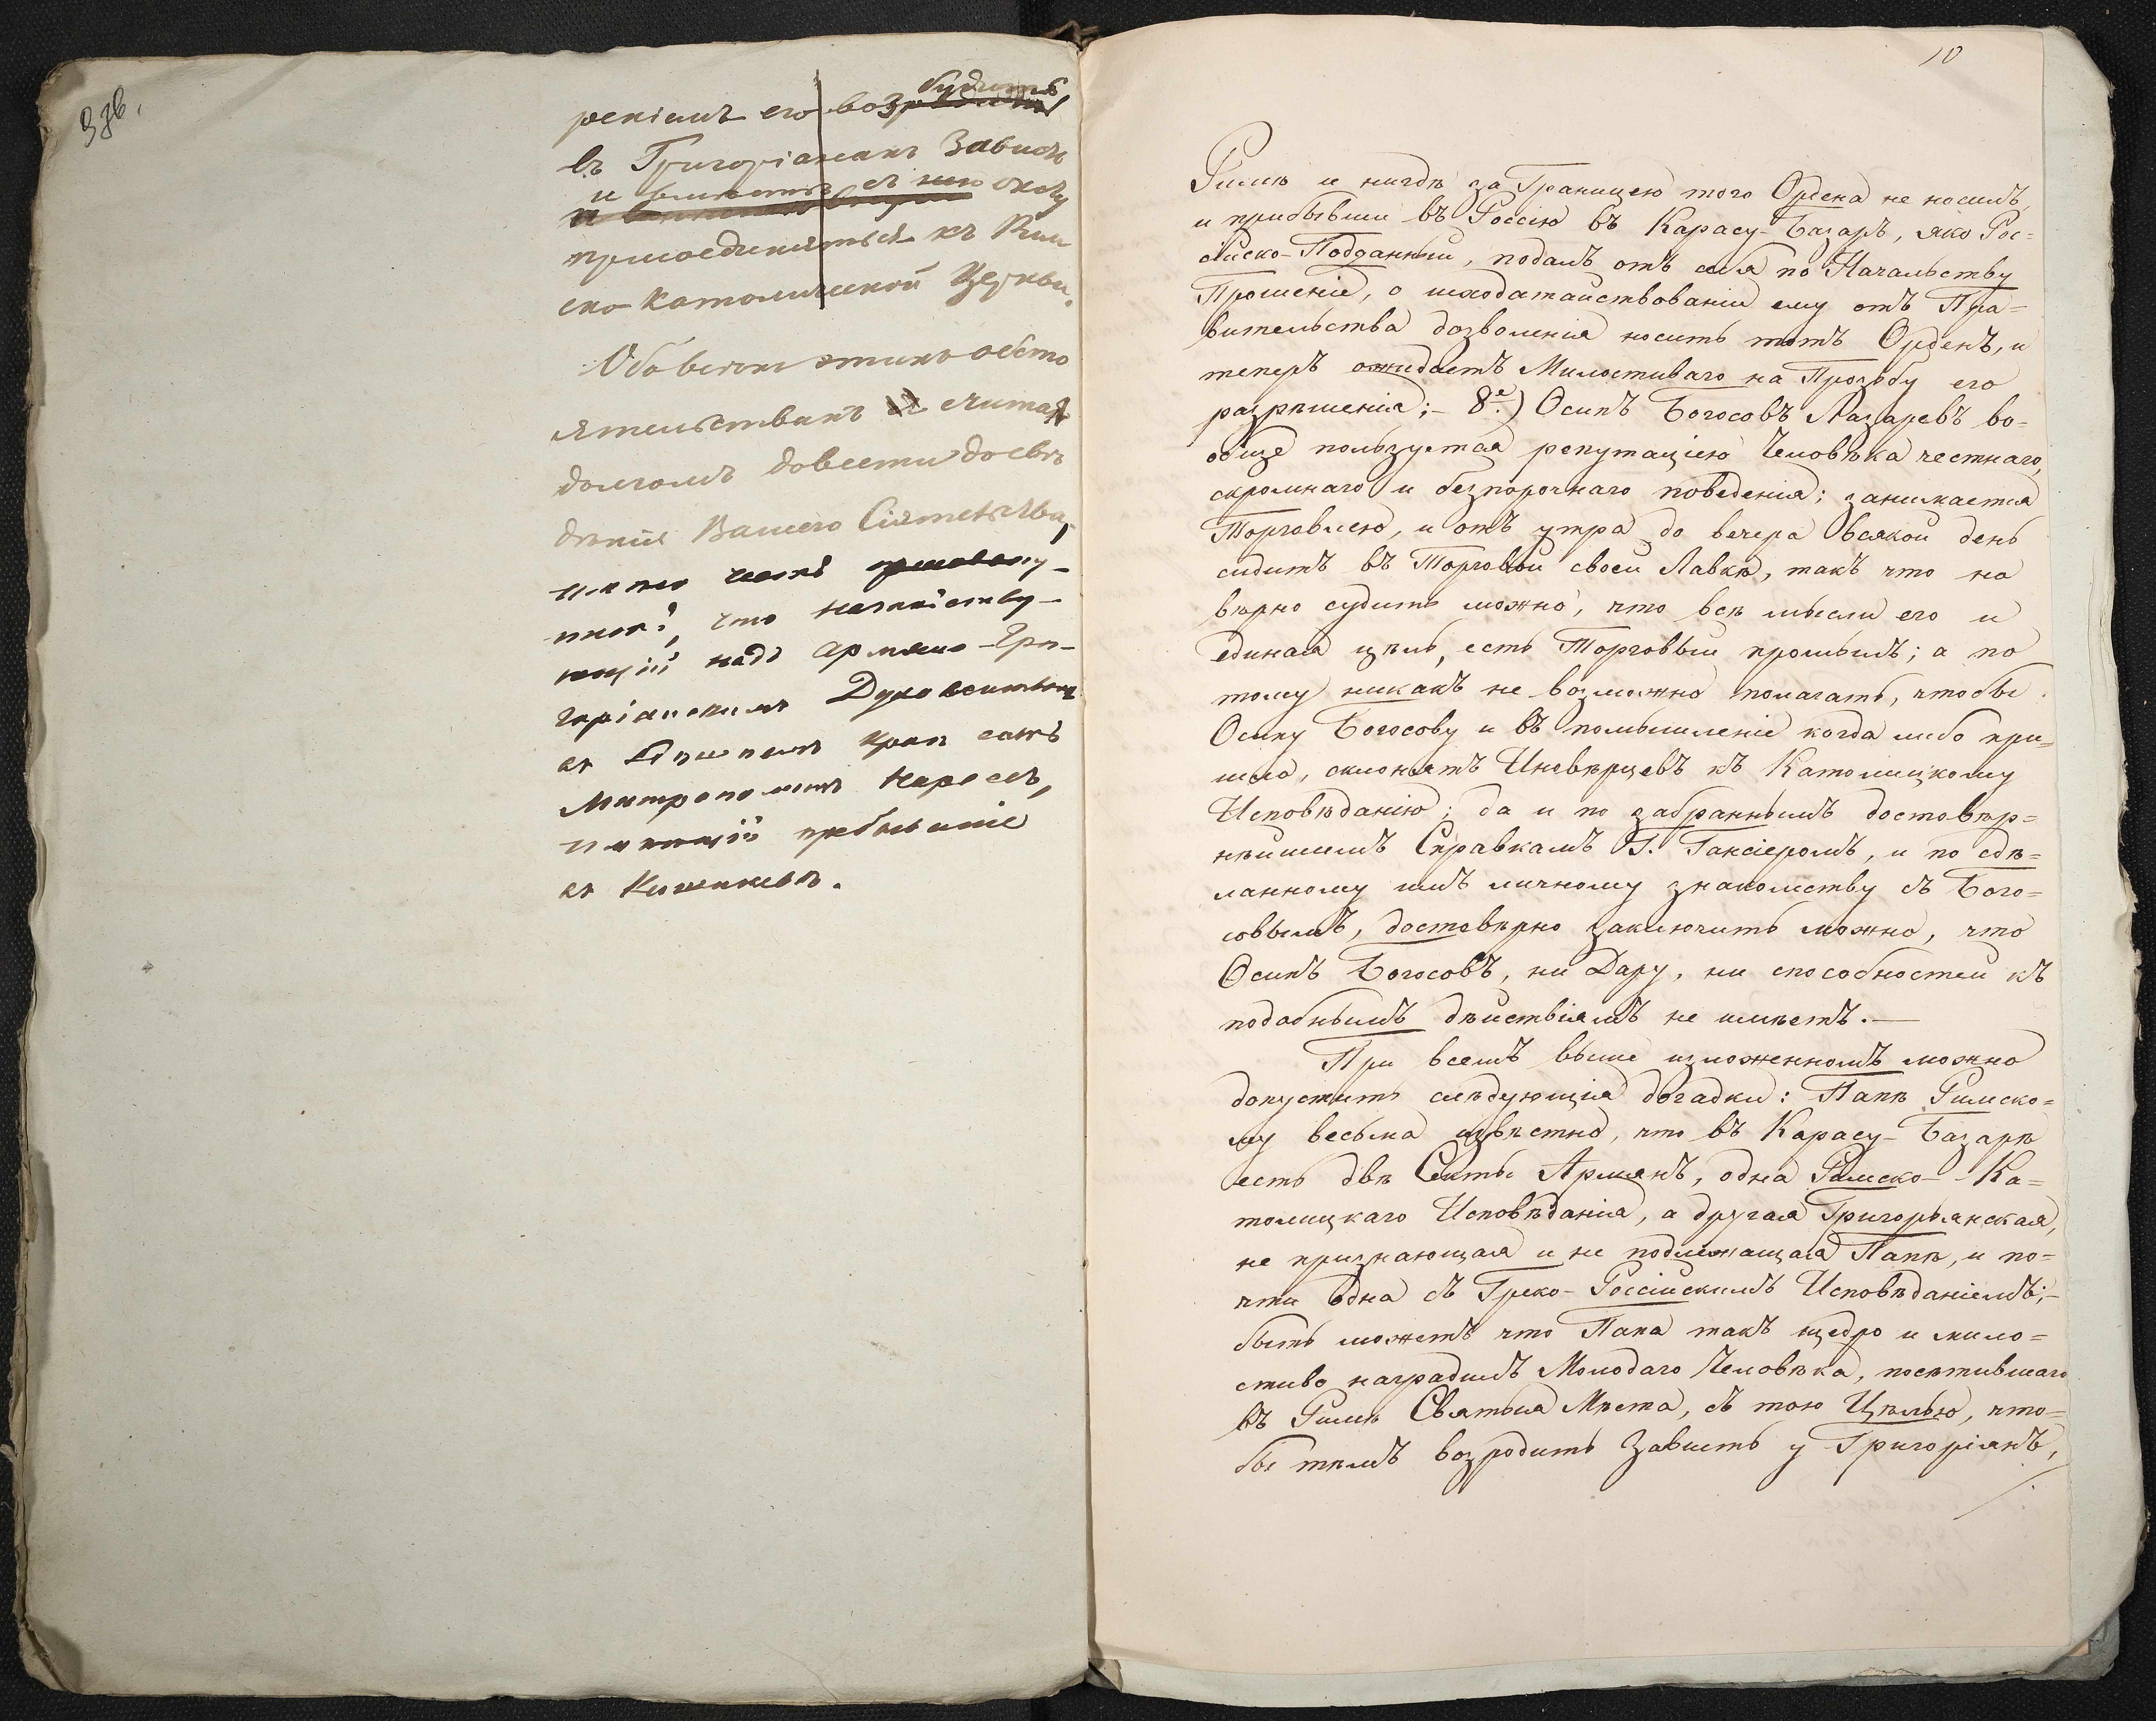 378.
будитъ
реніемъ его воз
въ Григоріанахъ Зависть
и вмѣстѣ съ нею охоту
присоединяться къ Рим
ско Католической Церкви.
Обо всѣхъ этихъ обсто
ятельствахъ я считая
долгомъ довести до свѣ
дѣнія Вашего Сіятельства,
имѣю честь присовоку-
пить, что начальству-
ющій надъ Армяно-Гри-
горіанскимъ Духовенствомъ
въ здѣшнемъ краѣ есть
Митрополитъ Нарсесъ,
имѣющій пребываніе
въ Кишиневѣ.
10
Римѣ и нигдѣ за Границею того Ордена не носилъ,
и прибывши въ Россію въ Карасу-Базаръ, яко Рос=
сійско-Подданный, подалъ отъ себя по Начальству
Прошеніе, о исходатайствованіи ему отъ Пра=
вительства дозволенія носить тотъ Орденъ, и
теперъ ожидаетъ Милостиваго на Прозьбу его
разрѣшенія; - 8е.) Осипъ Богосовъ Лазаревъ во-
обще пользуется репутаціею Человѣка честнаго,
скромнаго и безпорочнаго поведенія; занимается
Торговлею, и отъ утра до вечера всякой день
сидитъ въ Торговой своей Лавкѣ, такъ что на
вѣрно судить можно, что всѣ мысли его и
единая цѣль, есть Торговый промыслъ; а по
тому никакъ не возможно полагать, чтобы
Осипу Богосову и въ помышленіе когда либо при=
шло, склонять Иновѣрцевъ къ Католицкому
Исповѣданію; да и по забраннымъ достовѣр=
нѣйшимъ Справкамъ Г. Гаксіеромъ, и по сдѣ=
ланному имъ личному знакомству съ Бого=
совымъ, достовѣрно заключить можно, что
Осипъ Богосовъ, ни Дару, ни способностей къ
подобнымъ дѣйствіямъ не имѣетъ. —
При всемъ выше изложенномъ можно
допустить слѣдующія догадки: Папѣ Римско=
му весьма извѣстно, что въ Карасу-Базарѣ
есть двѣ Секты Армянъ, одна Римско-Ка=
толицкаго Исповѣданія, а другая Григорьянская,
не признающая и не подлежащая Папѣ, и по=
чти одна съ Греко-Россійскимъ Исповѣданіемъ; -
быть можетъ что Папа такъ щедро и мило=
стиво наградилъ Молодаго Человѣка, посѣтившаго
въ Римѣ Святыя Мѣста, съ тою Цѣлью, что=
бы тѣмъ возродить Зависть у Григоріянъ,